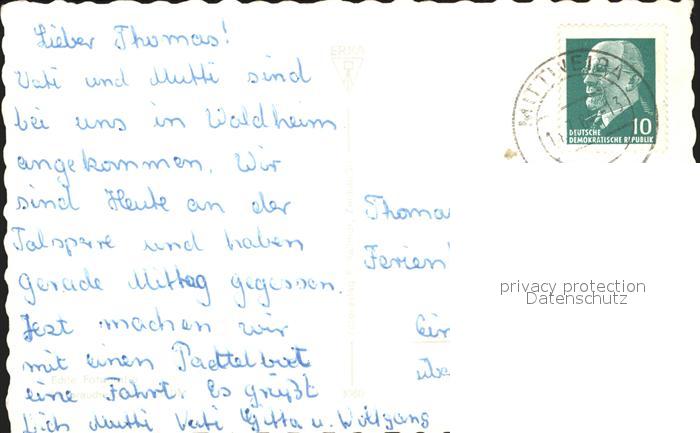 Lieber Thomas!
Vati und Mutti sind
bei uns in Waldheim
angekommen. Wir
sind Heute an der
Talsperre und haben
gerade Mittag gegessen.
Jezt machen wir
mit einen Paddelboot
eine Fahrt. Es grüßt
Dich Mutti Vati Gitta u. Wolfgang
ERKA
MITTWEIDA
10
DEUTSCHE
DEMOKRATISCHE REPUBLIK
Thoma
Ferien
privacy protection
Datenschutz
übe